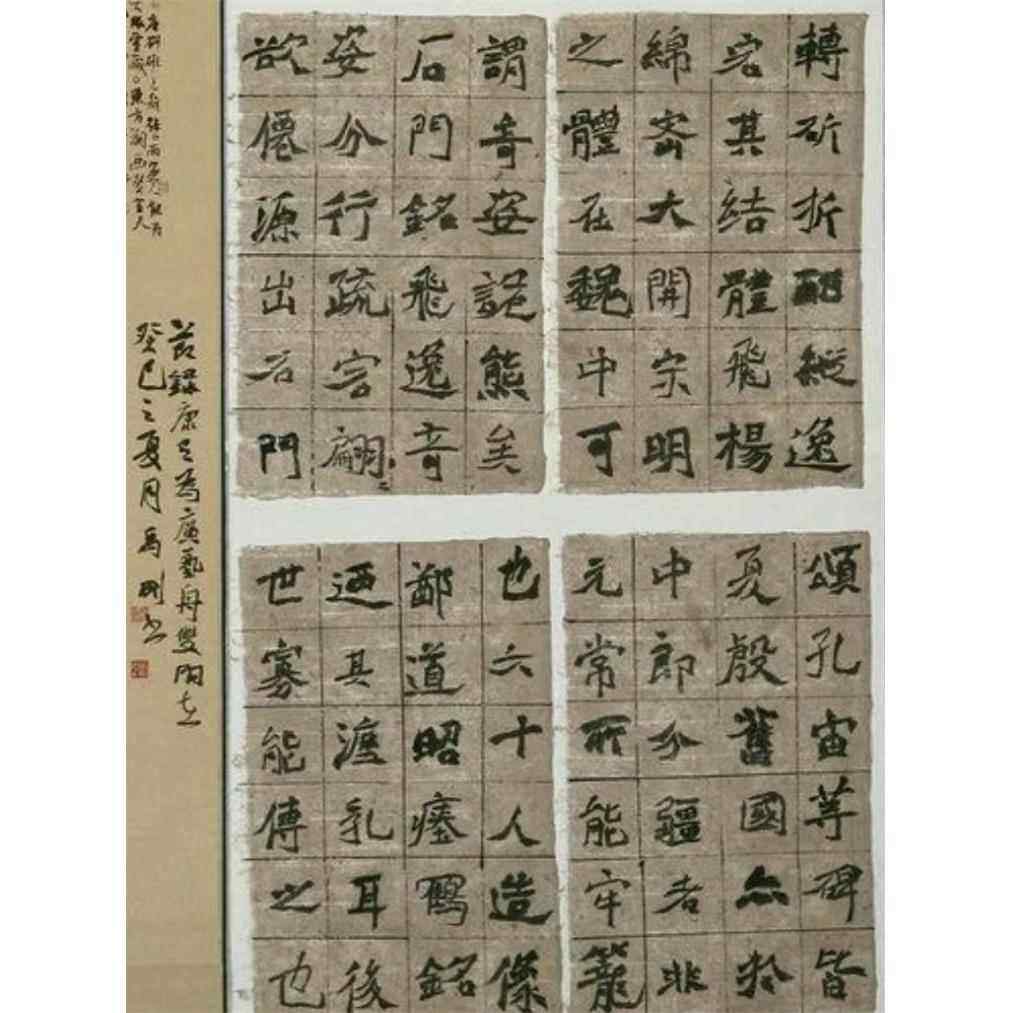 轉斫折酣縱逸
宕其結體飛楊
綿密大開宗明
之體在魏中可
謂奇姿詭熊矣
石門銘飛逸奇
姿分行疏宕翩〻
欲僊源出石門
頌孔宙等碑皆
夏殷舊國亦於
中郎分疆者非
元常所能牢籠
也六十人造像
鄭道昭瘞鶴銘
迺其乳耳後
世寡能傳之也
節錄康為廣藝舟雙
癸巳之夏月馬書